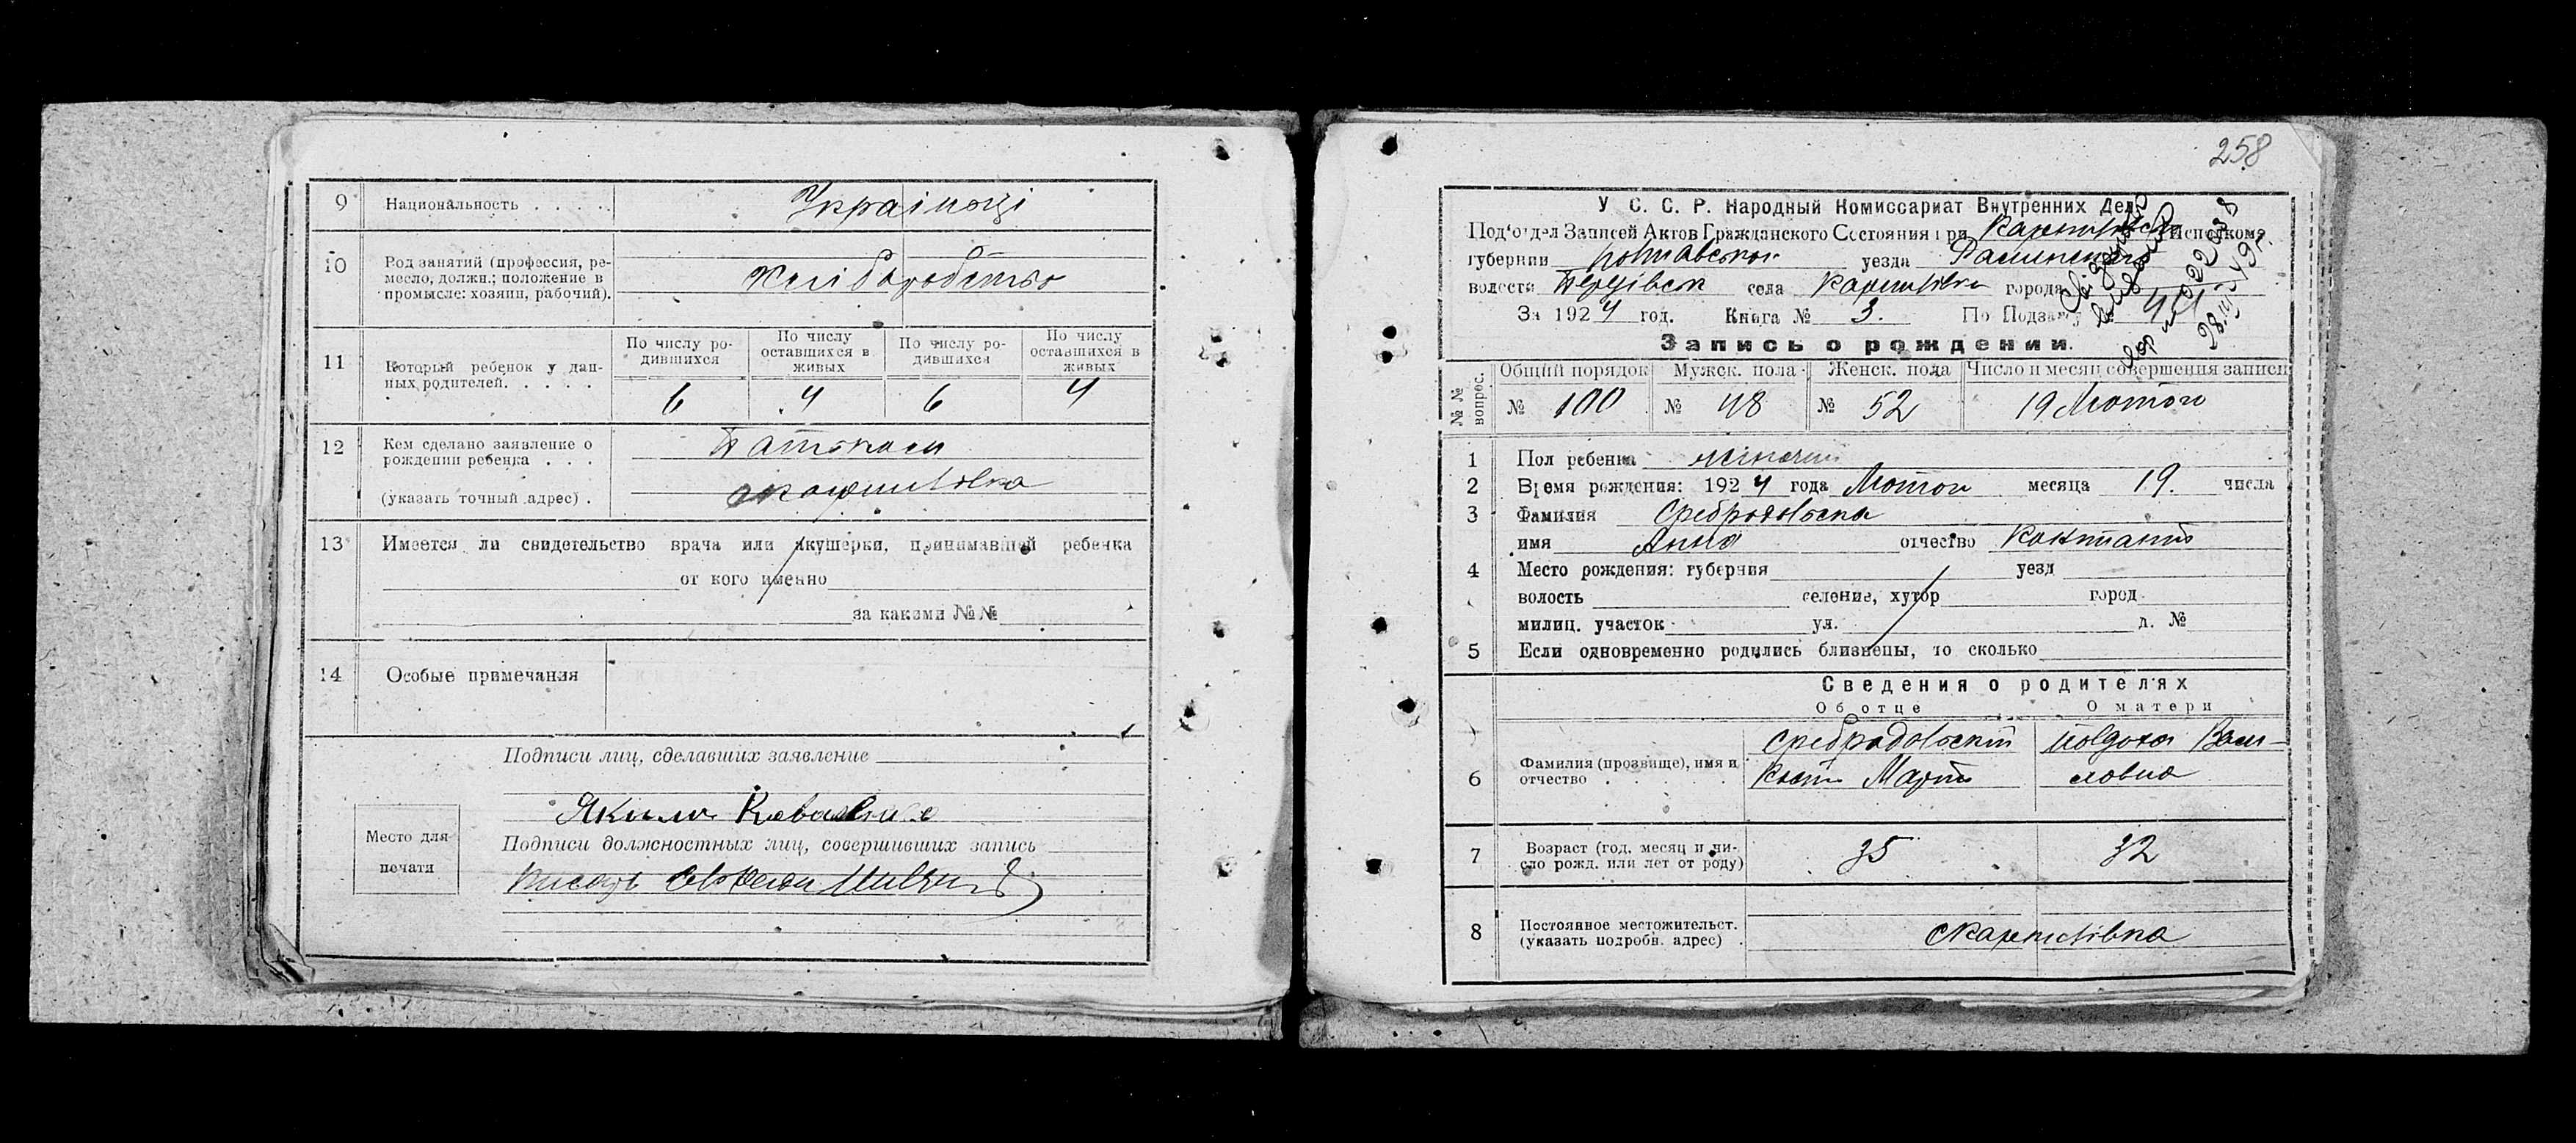 9 Национальность . . . . . Українці
10 Род занятий (профессия, ре-
месло, должн.; положение в
промысле: хозяин, рабочий). Хліборобство
11 Который ребенок у дан-
ных родителей. . . . . .
По числу ро-
дившихся
По числу
оставшихся в
живых
По числу ро-
дившихся
По числу
оставшихся в
живых
6 4 6 4
12 Кем сделано заявление о
рождении ребенка . . .
(указать точный адрес) .
Батьками
13 Имеется ли свидетельство врача или акушерки, принимавшей ребенка
от кого именно
за какими №№
14 Особые примечания
Подписи лиц, сделавших заявление
Яким
Место для
печати
Подписи должностных лиц, совершивших запись
писарь
258
У С. С. Р. Народный Комиссариат Внутренних Дел
Под'отдел Записей Актов Гражданского Состояния при Исполкоме
губернии Полтавської уезда
волости села города
За 1924 год. Книга № 3. По Подзагу №
28. 49 г.
Запись о рождении.
№ № вопрос.
Общий порядок Мужск. пола Женск. пола Число и месяц совершения записи
№ 100 № 48 № 52 19 Лютого
1 Пол ребенка жіночий
2 Время рождения: 1924 года Лютого месяца 19. числа
3 Фамилия Сребродовська
имя Анна отчество Констант
4 Место рождения: губерния уезд
волость селение, хутор город
милиц. участок ул. д. №
5 Если одновременно родились близнецы, то сколько
Сведения о родителях
Об отце О матери
6 Фамилия (прозвище), имя и
отчество . . . .
Сребродовський
Кость Март
Василовна
7 Возраст (год, месяц и чи-
сло рожд. или лет от роду) 35 32
8 Постоянное местожительст.
(указать подробн. адрес) .